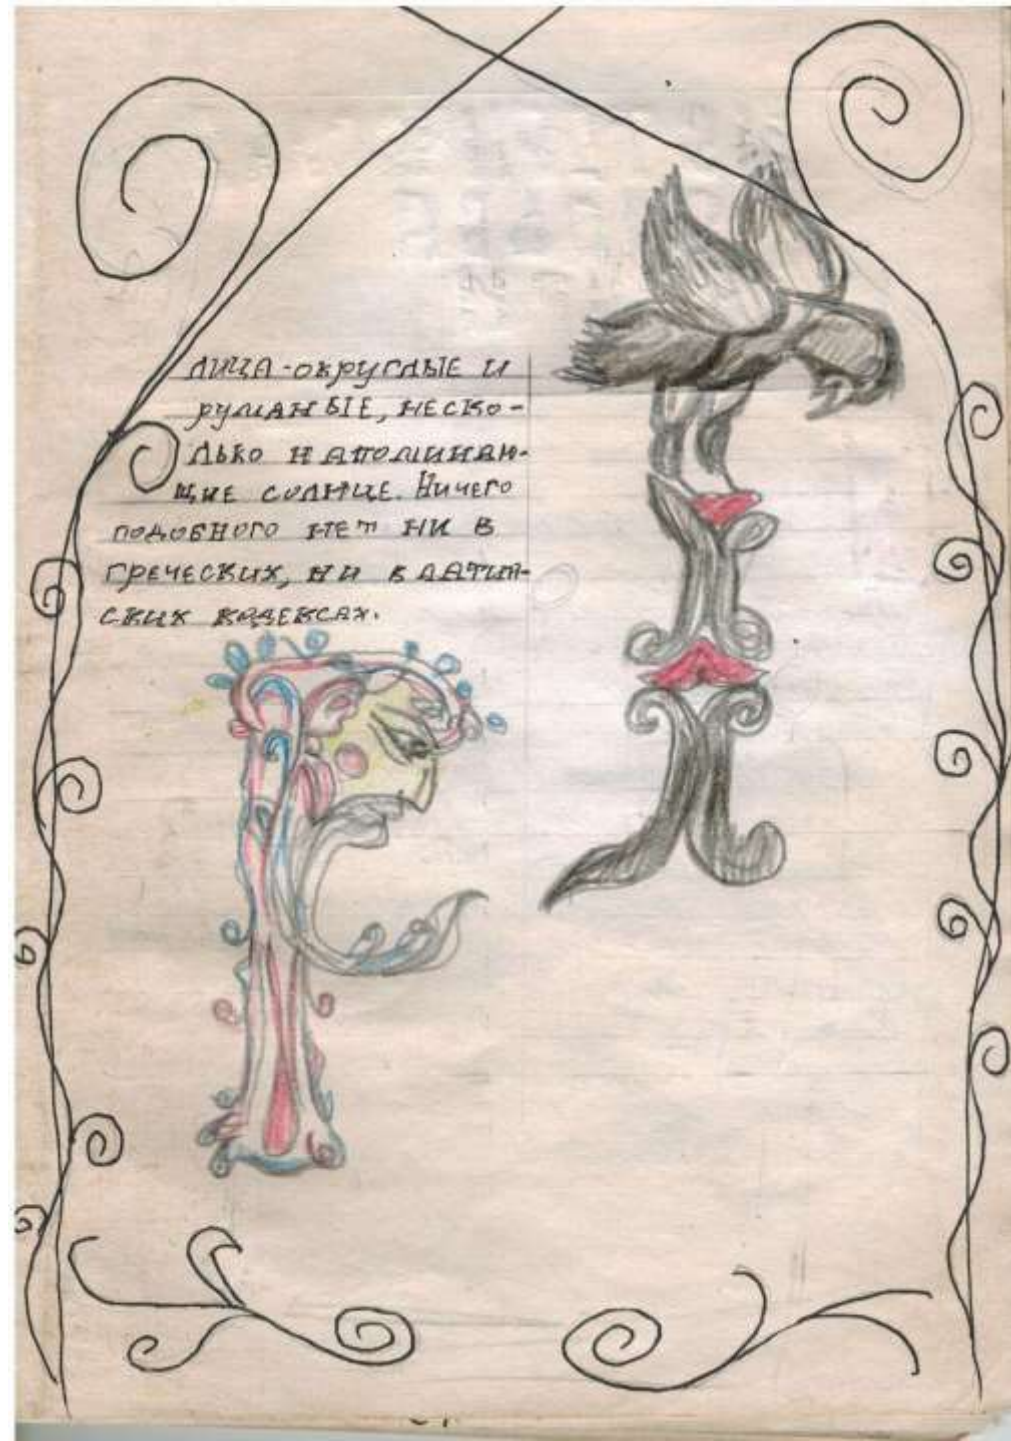 ЛИЦА-ОКРУГЛЫЕ И
РУМЯНЫЕ, НЕСКО-
ЛЬКО НАПОМИНАЮ-
ЩИЕ СОЛНЦЕ. Ничего
ПОДОБНОГО НЕТ НИ В
ГРЕЧЕСКИХ, НИ В ЛАТИН-
СКИХ КОДЕКСАХ.